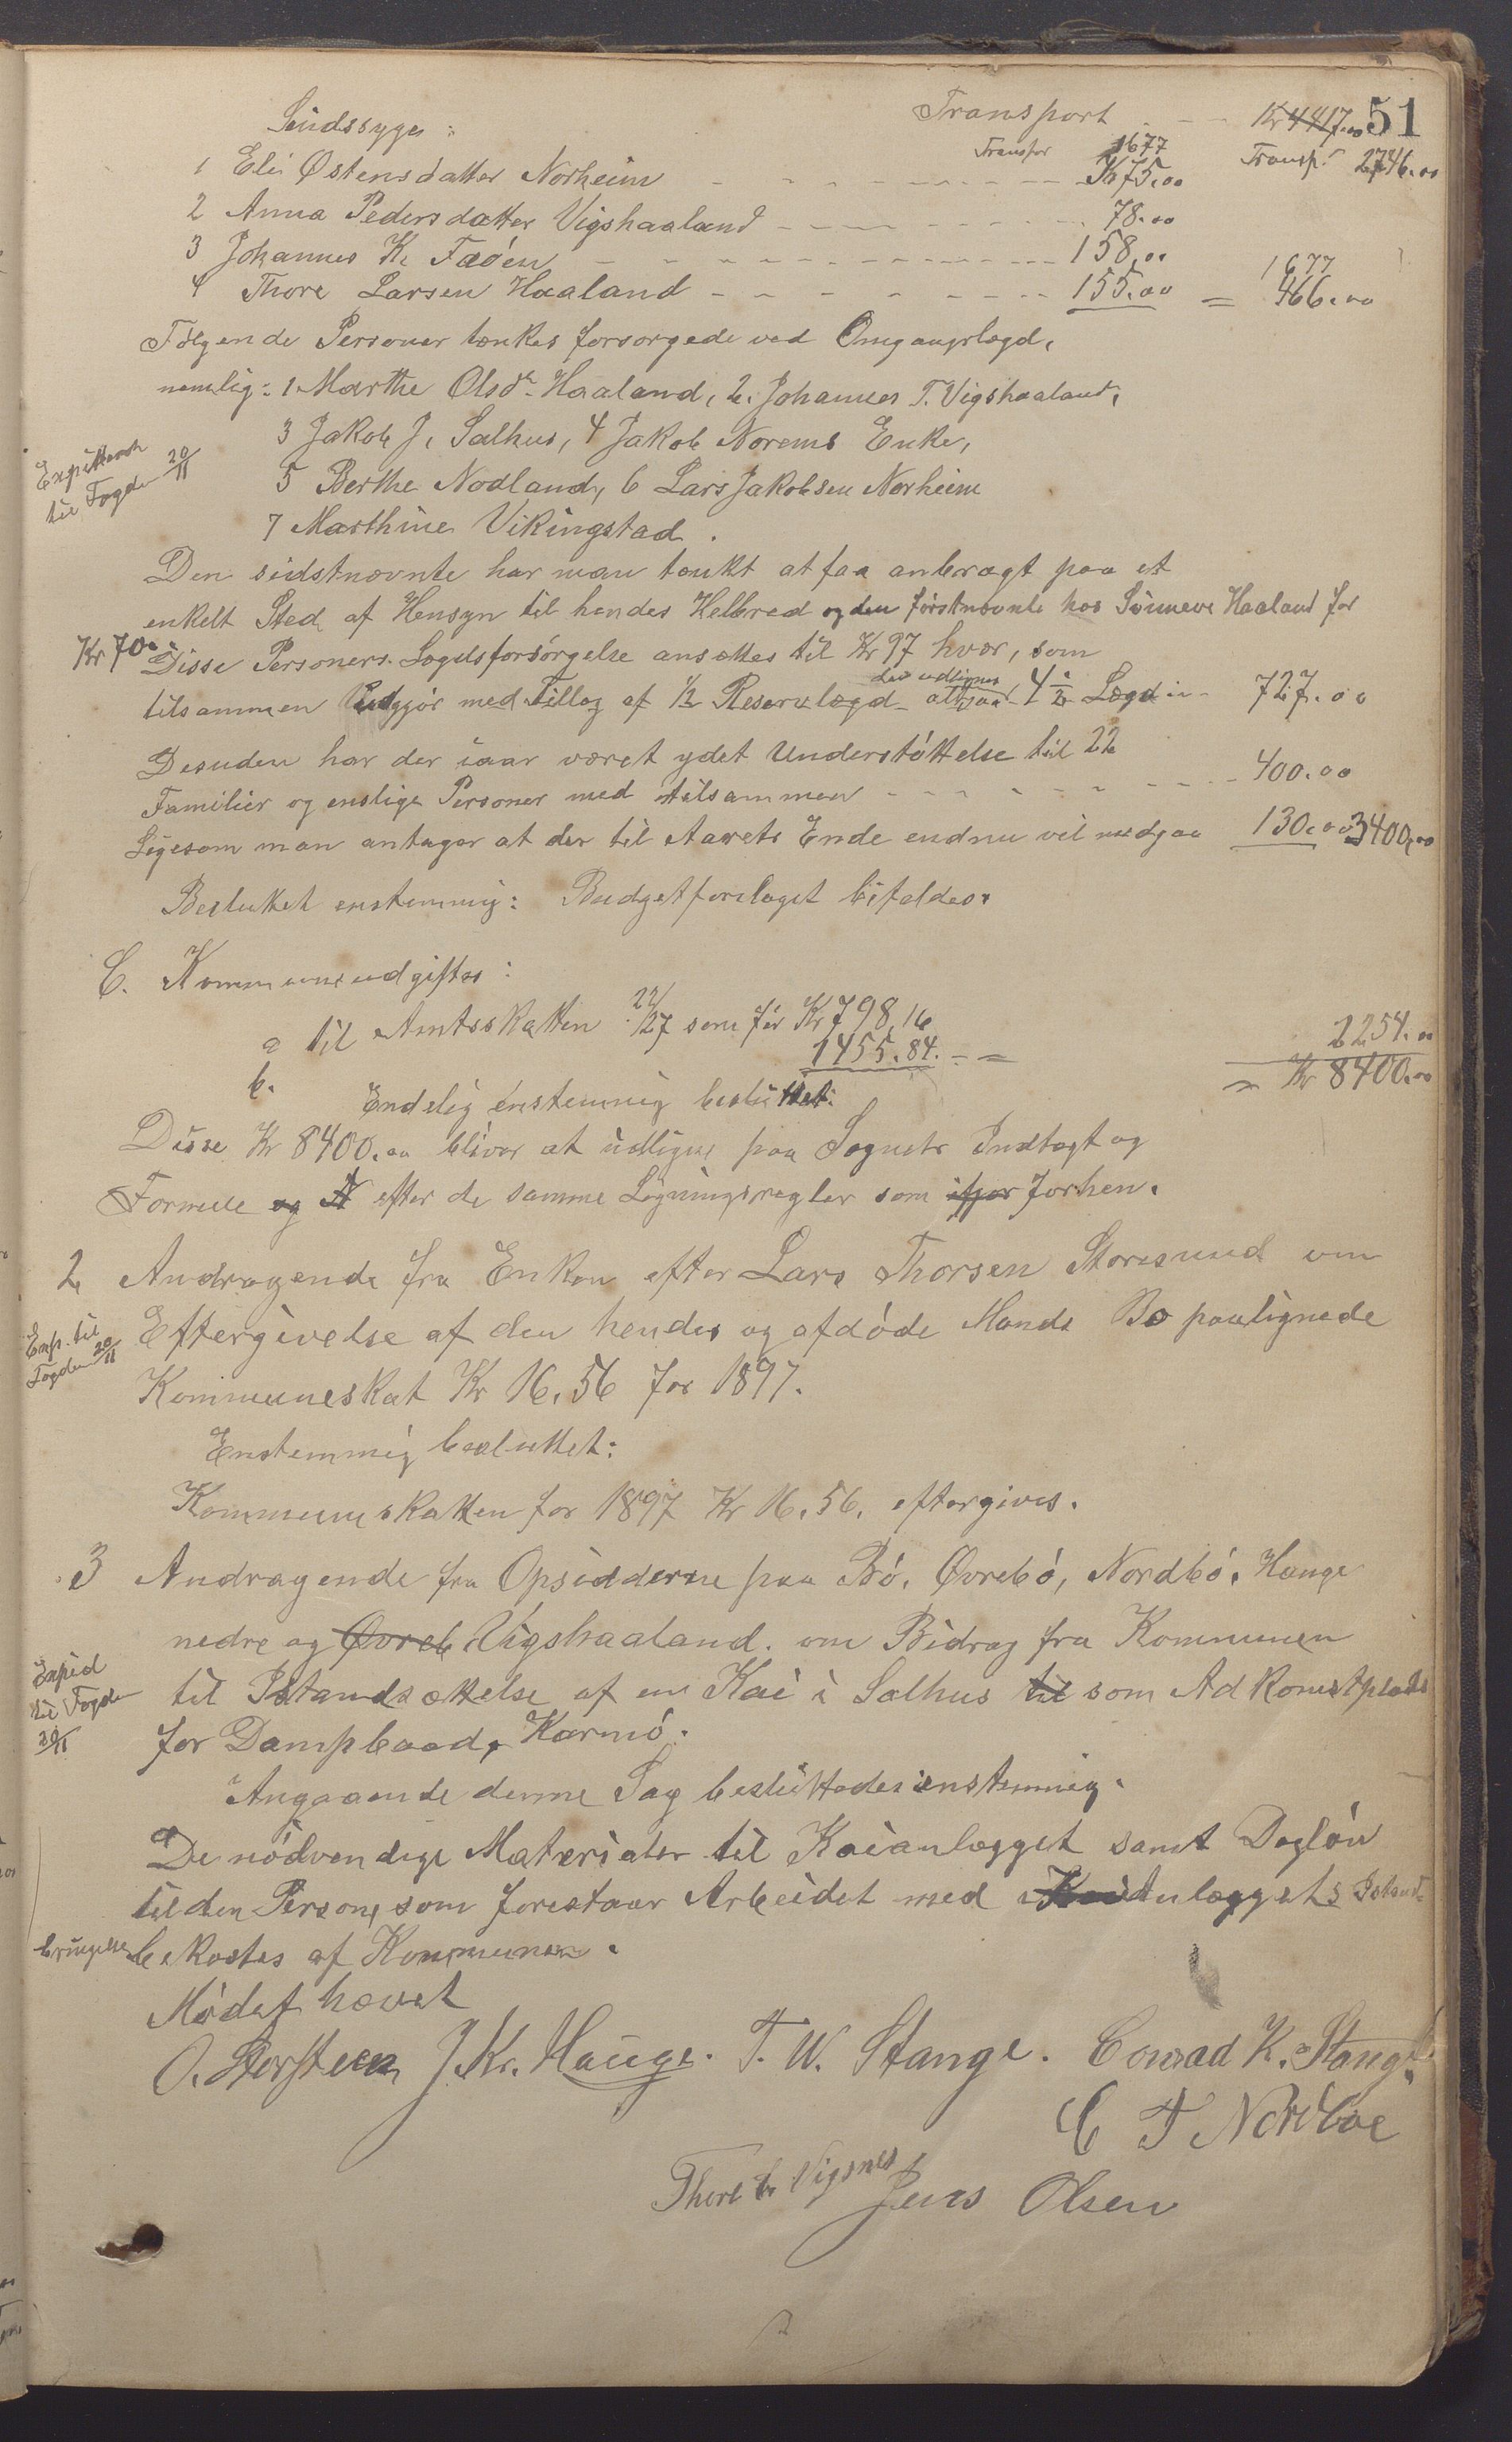 51
Transport Kr 4417.00
Sindssyge: Transpor 1677 Transp. 2746.00
1 Eli Østensdatter Norheim Kr 75.00
2 Anna Pedersdatter Vigshaaland 78.00
3 Johannes K. Fæøen 158.00
4 Thore Larsen Haaland 155.00 = 1677 466.00
Følgende Personer tænkes forsørgede ved Omgangslægd,
nemlig: 1. Marthe Olsdr. Haaland, 2. Johannes T. Vigshaaland,
3 Jakob J. Salhus, 4 Jakob Norems Enke,
Expiderth til Fogden 20/11
5 Berthe Nodland, 6 Lars Jakobsen Norheim
7 Marthine Vikingstad.
Den sidstnævnte har man tænkt at faa anbragt paa et
enkelt Sted af Hensyn til hendes Helbred og den førstnævnte hos Sønneve Haaland for
Kr 70.00 Disse Personers Lægdsforsørgelse ansættes til Kr 97 hver, som
tilsammen udgjør med Tillæg af 1/2 Reservelægd der udlignes altsaa Lægd 727.00
Desuden har der iaar været ydet Understøttelse til 22
Familier og enslige Personer med tilsammen 400.00
Ligesom man antager at der til Aarets Ende endnu vil medgaa 130.00 3400.00
Besluttet enstemmig: Budgetforslaget bifaldes.
C. Kommuneudgifter:
a til Amtsskatten 22/27 som før Kr 798,16
b. 1455.84. = 2254.00
= Kr 8400.00
Endelig enstemmig besluttet:
Disse Kr 8400.00 bliver at udligne paa Sognets Indtægt og
Formue og efter de samme Ligningsregler som ifjor forhen.
2 Andragende fra Enken efter Lars Thorsen Storesund om
Exp. til Fogden 20/11
Eftergivelse af den hendes og afdøde Mands Bo paalignede
Kommuneskat Kr 16.56 for 1897.
Enstemmig besluttet:
Kommuneskatten for 1897 Kr 16.56. eftergives.
3 Andragende fra Opsidderne paa Bö, Øvrebö, Nordbö, Hauge
nedre og Øvreb Vigshaaland. om Bidrag fra Kommunen
Expid til Fogden 20/11
til Istandsættelse af en Kai i Salhus til som Adkomstplads
for Dampbaad, Karmö.
Angaaende denne Sag besluttedes enstemmig.
De nödvendige Materialer til Kaianlægget samt Daglön
til den Person, som forestaar Arbeidet med Kai Anlæggets Istand-
bringelse bekostes af Kommunen.
Mödet hævet
O. Storsteen J. Kr. Hauge. T. W. Stange. Conrad K. Stange.
C T Nordboe
Thore Vigsnes Jens Olsen